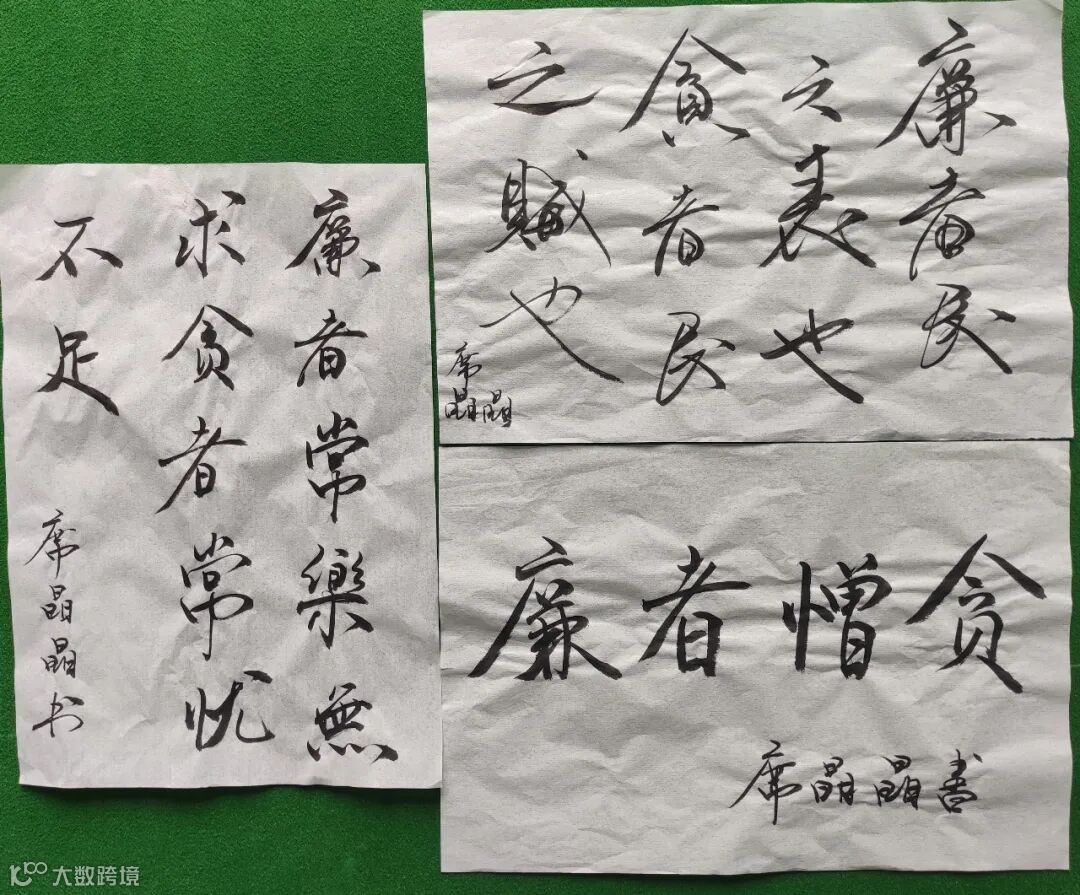 廉者常樂無
求贪者常忧
不足
席晶晶书
廉者民
之表也
貪者民
之賊也
席
晶晶
廉者憎贪
席晶晶書
大数跨境